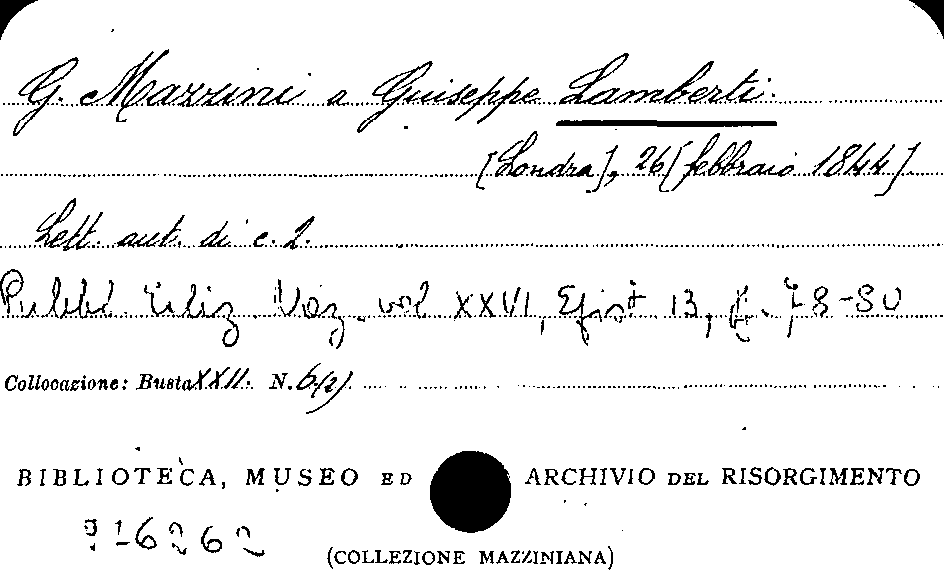 G. Mazzini a Giuseppe Lamberti.
[Londra], 26 [febbraio 1844].
Lett. aut. di c. 2.
Pubbl. Ediz. Naz. vol XXVI, Epist. 13, p. 78-80
Collocazione: Busta XXII. N. 6(2)
BIBLIOTECA, MUSEO ED ARCHIVIO DEL RISORGIMENTO
916262
(COLLEZIONE MAZZINIANA)